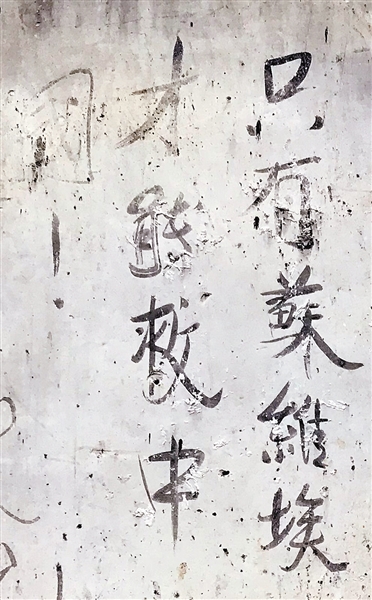 只有蘇維埃
才能救中
国！